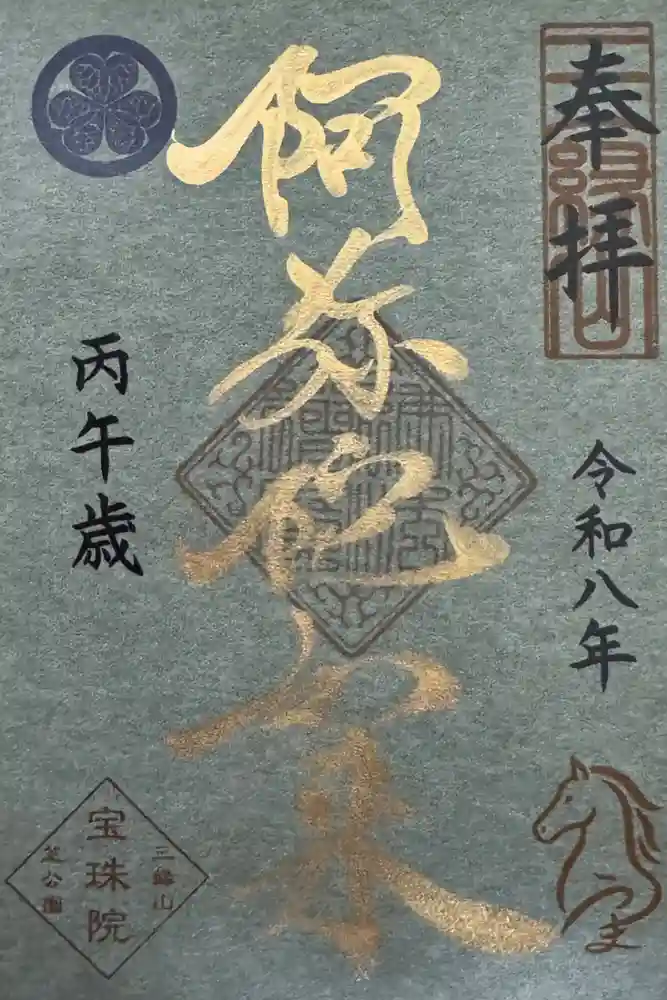 奉拝
三縁山
令和八年
阿弥陀如来
丙午歳
三縁山
宝珠院
芝公園
うま